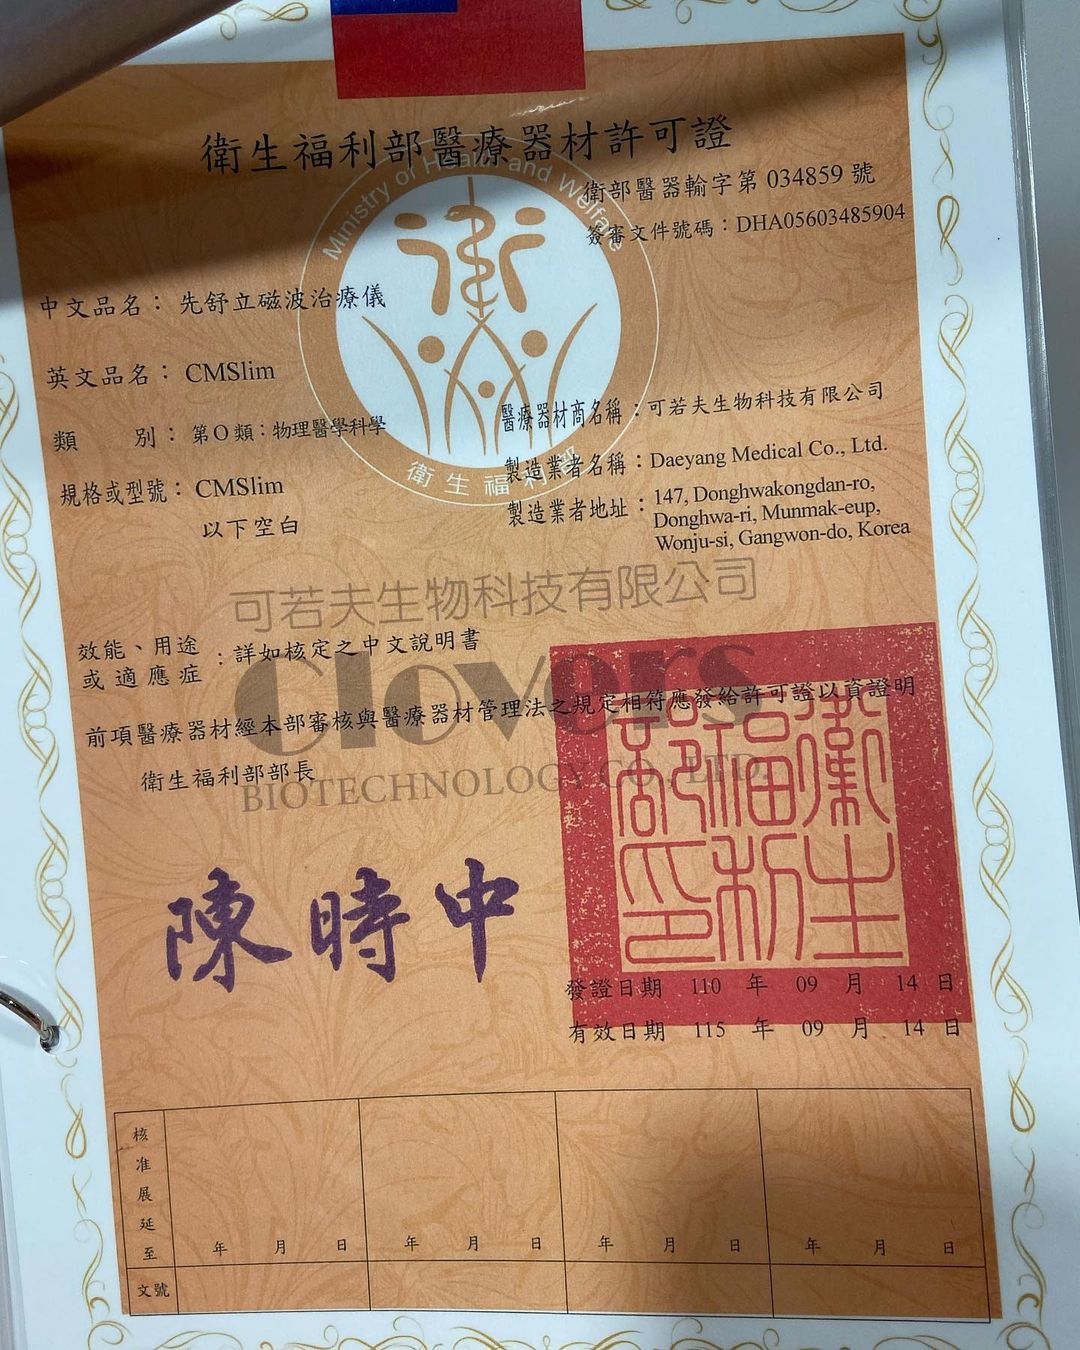 衛生福利部醫療器材許可證
衛部醫器輸字第 034859 號
簽審文件號碼：DHA05603485904
Ministry of Health and Welfare
衛生福利部
中文品名：先舒立磁波治療儀
英文品名：CMSlim
類 別：第O類：物理醫學科學
規格或型號：CMSlim
以下空白
醫療器材商名稱：可若夫生物科技有限公司
製造業者名稱：Daeyang Medical Co., Ltd.
製造業者地址：147, Donghwakongdan-ro,
Donghwa-ri, Munmak-eup,
Wonju-si, Gangwon-do, Korea
可若夫生物科技有限公司
Clovers
BIOTECHNOLOGY CO., LTD.
效能、用途
或適應症：詳如核定之中文說明書
前項醫療器材經本部審核與醫療器材管理法之規定相符應發給許可證以資證明
衛生福利部部長
陳時中
衛生福利部印
發證日期 110 年 09 月 14 日
有效日期 115 年 09 月 14 日
核准展延至 年 月 日 年 月 日 年 月 日 年 月 日
文號